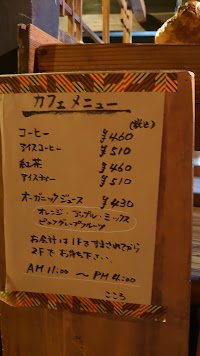 カフェメニュー
(税込)
コーヒー ¥460
アイスコーヒー ¥510
紅茶 ¥460
アイスティー ¥510
オーガニックジュース ¥430
オレンジ・アップル・ミックス
ピンクグレープフルーツ
お会計は1Fですませてから
2Fでお待ち下さい。
AM 11:00 〜 PM 4:00
こころ